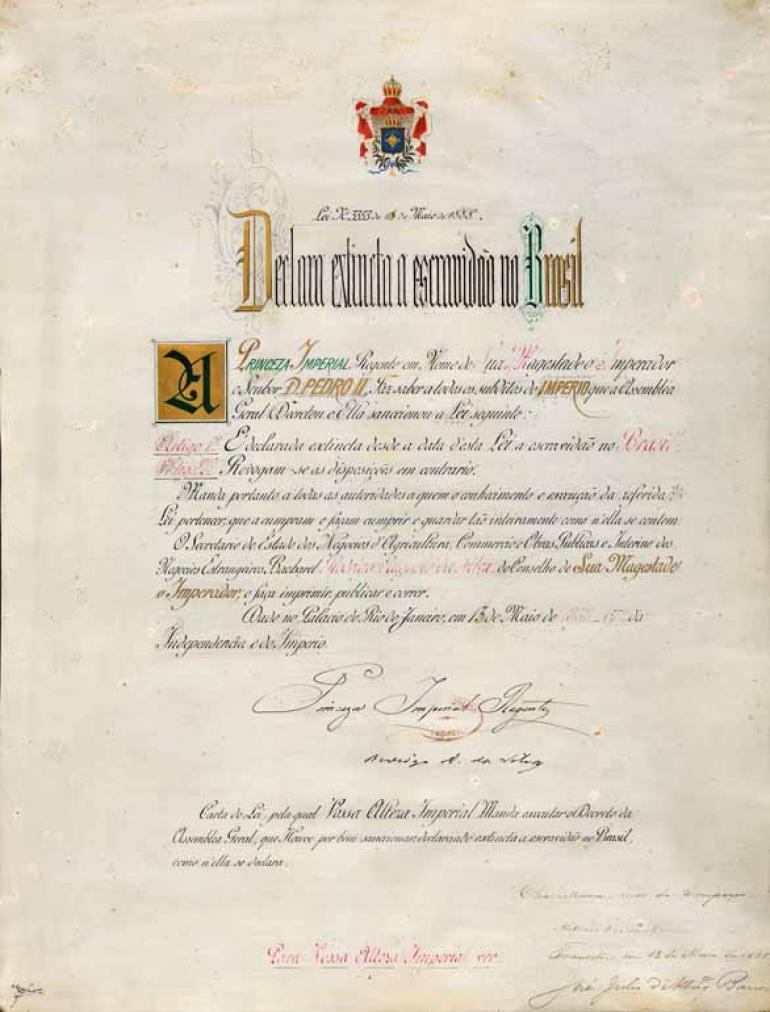 Lei N. 3353 de 13 de Maio de 1888.
Declara extincta a escravidão no Brasil
A PRINCEZA IMPERIAL Regente em Nome de Sua Magestade o Imperador
o Senhor D. PEDRO II, Faz saber a todos os subditos do IMPERIO que a Assemblea
Geral Decretou e Ella sanccionou a Lei seguinte:
Artigo 1º E' declarada extincta desde a data d'esta Lei a escravidão no Brasil
Artigo 2º Revogam-se as disposições em contrario.
Manda portanto a todas as autoridades a quem o conhecimento e execução da referida
Lei pertencer, que a cumpram e façam cumprir e guardar tão inteiramente como n'ella se contem
O Secretario de Estado dos Negocios d'Agricultura, Commercio e Obras Publicas e Interino dos
Negocios Estrangeiros, Bacharel do Conselho de Sua Magestade
o Imperador, o faça imprimir, publicar e correr.
Dado no Palacio do Rio de Janeiro, em 13 de Maio de 1888 67º da
Independencia e do Imperio.
Princeza Imperial Regente
Rodrigo A. da Silva
Carta de Lei, pela qual Vossa Alteza Imperial Manda executar o Decreto da
Assemblea Geral, que Houve por bem sanccionar declarando extincta a escravidão no Brasil,
como n'ella se declara.
Para Vossa Alteza Imperial ver
Chancellaria mor do Imperio
Transitou em 13 de Maio de 1888
José Julio d'Albuq Barros